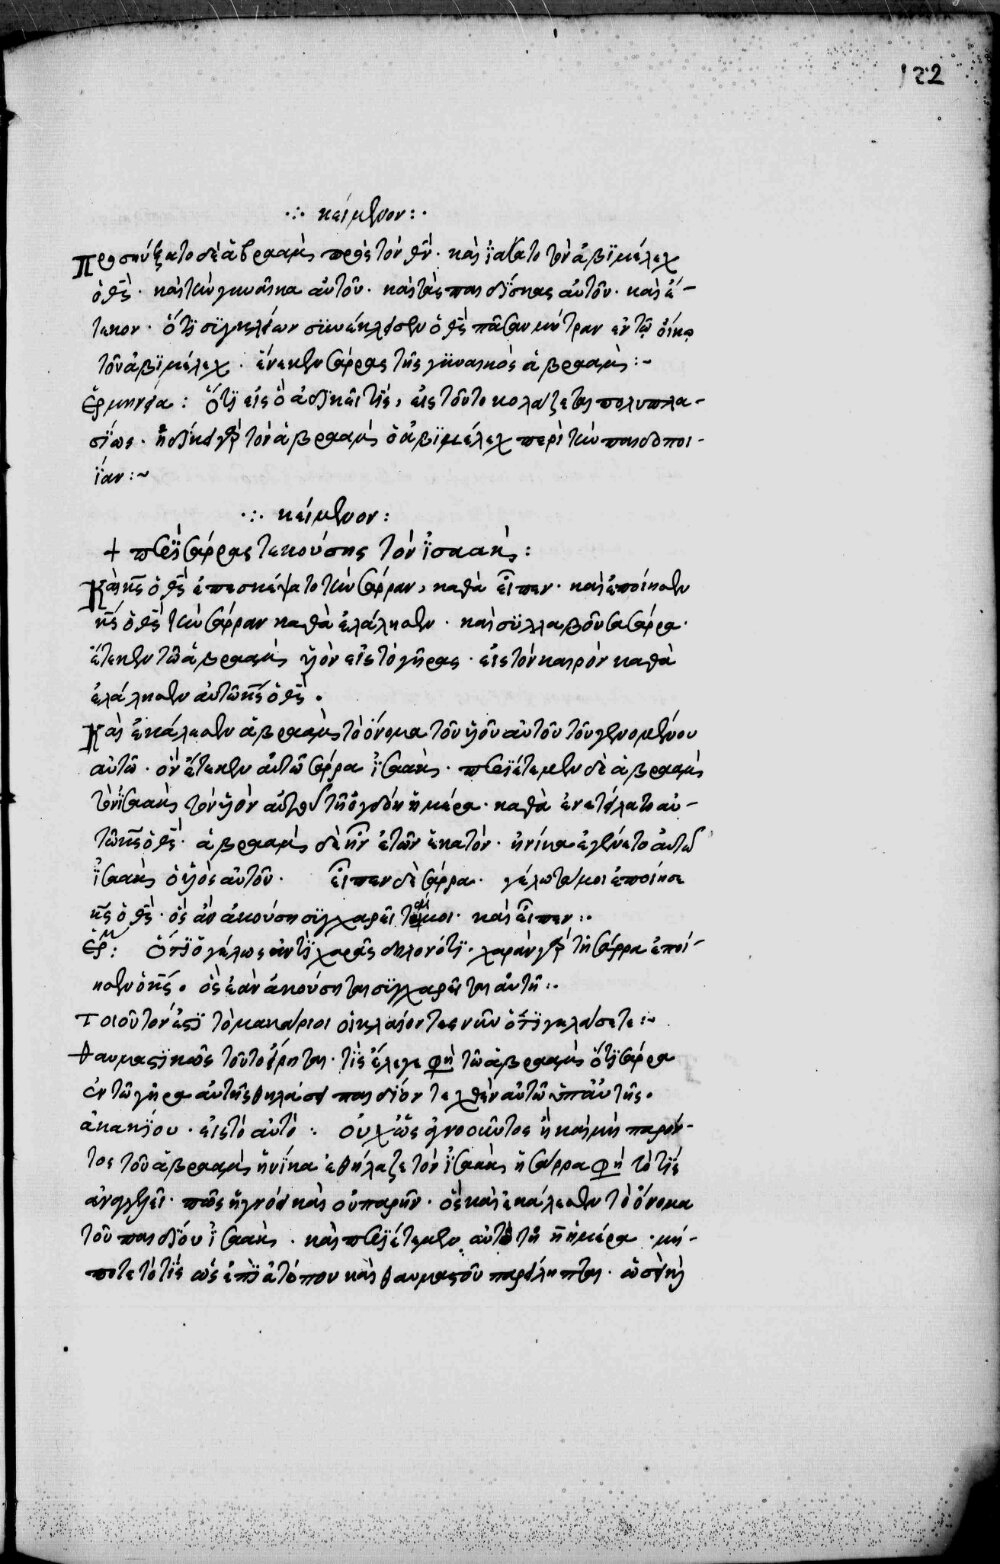 122
∴ κείμενον :·
Προσηύξατο δὲ ἀβραὰμ πρὸς τὸν θν̄· καὶ ἰάσατο τὸν ἀβϊμέλεχ
ὁ θς̄· καὶ τὴν γυναῖκα αὐτοῦ· καὶ τὰς παιδίσκας αὐτοῦ· καὶ ἔ-
τεκον· ὅτϊ συγκλείων συνέκλεισεν ὁ θς̄ πᾶσαν μήτραν ἐν τῷ οἴκῳ
τοῦ ἀβϊμέλεχ· ἕνεκεν σάρρας τῆς γυναικὸς ἀβραάμ :~
Ἑρμηνεία : Ὅτϊ εἰς ὃ ἀδικεῖ τϊς, εἰς τοῦτο κολάζεται πολυπλα-
σίως· ἠδίκει γὰρ τὸν ἀβραὰμ ὁ ἀβϊμέλεχ περὶ τὴν παιδοποι-
ΐαν :~
∴ κείμενον :
+ περὶ σάρρας τεκούσης τὸν ἰσαάκ :
Καὶ κς̄ ὁ θς̄ ἐπεσκέψατο τὴν σάρραν, καθὰ εἶπεν· καὶ ἐποίησεν
κς̄ ὁ θς̄ τὴν σάρραν καθὰ ἐλάλησεν· καὶ συλλαβοῦσα σάρρα·
ἔτεκεν τῶ ἀβραὰμ ὑϊὸν εἰς τὸ γῆρας· εἰς τὸν καιρὸν καθὰ
ἐλάλησεν αὐτῶ κς̄ ὁ θς̄.
Καὶ ἐκάλεσεν ἀβραὰμ τὸ ὄνομα τοῦ ὑϊοῦ αὐτοῦ τοῦ γενομένου
αὐτῶ· ὃν ἔτεκεν αὐτῶ σάρρα ἰσαάκ· περιέτεμεν δὲ ἀβραὰμ
τὸν ἰσαὰκ τὸν ὑϊὸν αὐτοῦ τῆ ὀγδόη ἡμέρα· καθὰ ἐνετείλατο αὐ-
τῶ κς̄ ὁ θς̄· ἀβραὰμ δὲ ἦν ἐτῶν ἑκατόν· ἡνίκα ἐγένετο αὐτῶ
ἰσαὰκ ὁ ὑϊὸς αὐτοῦ· εἶπεν δὲ σάρρα· γέλωτά μοι ἐποίησε
κς̄ ὁ θς̄· ὃς ἂν ἀκούση συγχαρεῖταί μοι· καὶ εἶπεν :·
Ἑρμ : Ὅτϊ ὁ γέλως ἀντὶ χαρᾶς δηλονότϊ· χαρὰν γὰρ τῆ σάρρα ἐποί-
ησεν ὁ κς̄. ὃς ἐὰν ἀκούσηται συγχαρεῖται αὐτῆ :·
τοιοῦτόν ἐστϊ τὸ μακάριοι οἱ κλαίοντες νῦν ὅτϊ γελάσετε :~
θαυμαστϊκῶς τοῦτο εἴρηται· τίς ἔλεγε φη τῶ ἀβραὰμ ὅτϊ σάρρα
ἐν τῶ γήρα αὐτῆς θηλάσει παιδίον τεχθὲν αὐτῶ ὑπ' αὐτῆς.
ἀκακίου· εἰς τὸ αὐτό : οὐχ ὡς ἀγνοοῦντος ἢ καὶ μὴ παρόν-
τος τοῦ ἀβραὰμ ἡνίκα ἐθήλαζε τὸν ἰσαὰκ ἡ σάρρα φη τὸ τίς
ἀναγγελεῖ· πῶς ἠγνόει καὶ οὐ παρῆν· ὃς καὶ ἐκάλεσεν τὸ ὄνομα
τοῦ παιδίου ἰσαάκ· καὶ περιέτεμεν αὐτὸ τῆ η̄ ἡμέρα· μή-
ποτε τὸ τίς ὡς ἐπὶ ἀτόπου καὶ θαυμαστοῦ παρείληπται· ὡσεὶ